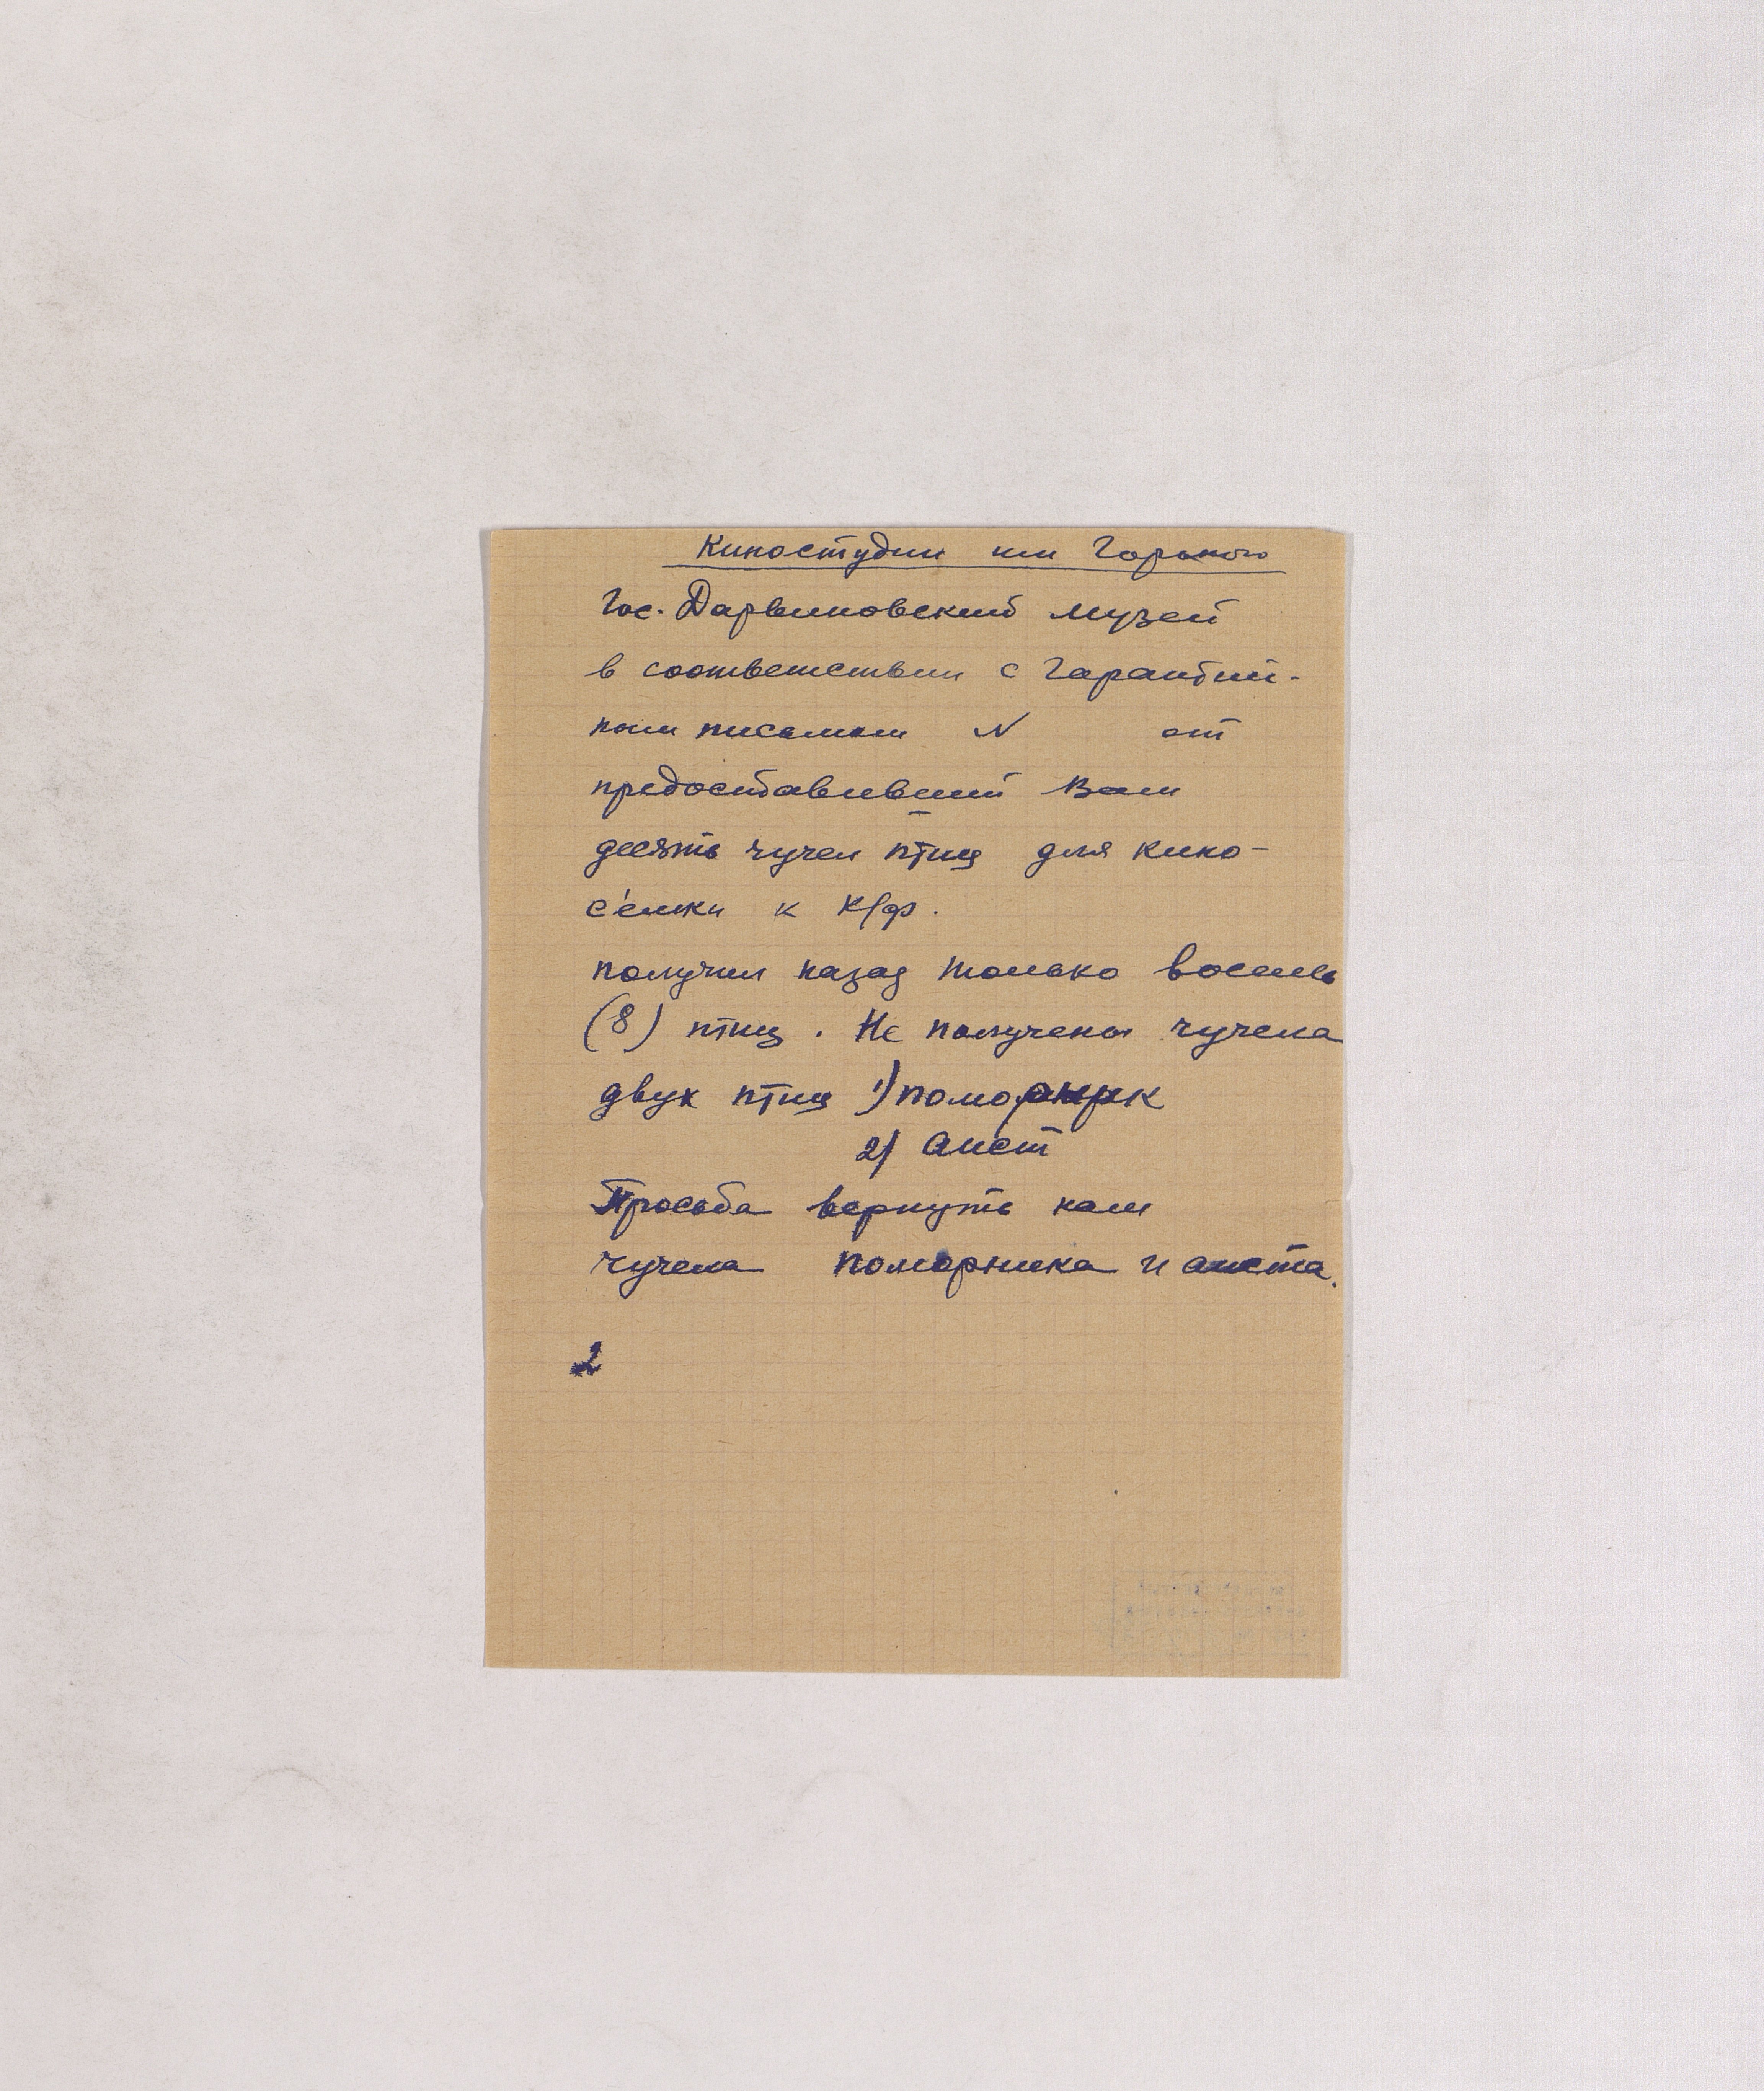 Киностудии им Горького
Гос. Дарвиновский музей
в соответствии с гарантий-
ным письмом N от
предоставивший Вам
десять чучел птиц для кино-
с'емки к к/ф.
получил назад только восемь
(8) птиц. Не получены чучела
двух птиц 1) поморник
2) аист
Просьба вернуть нам
чучела поморника и аиста.
2